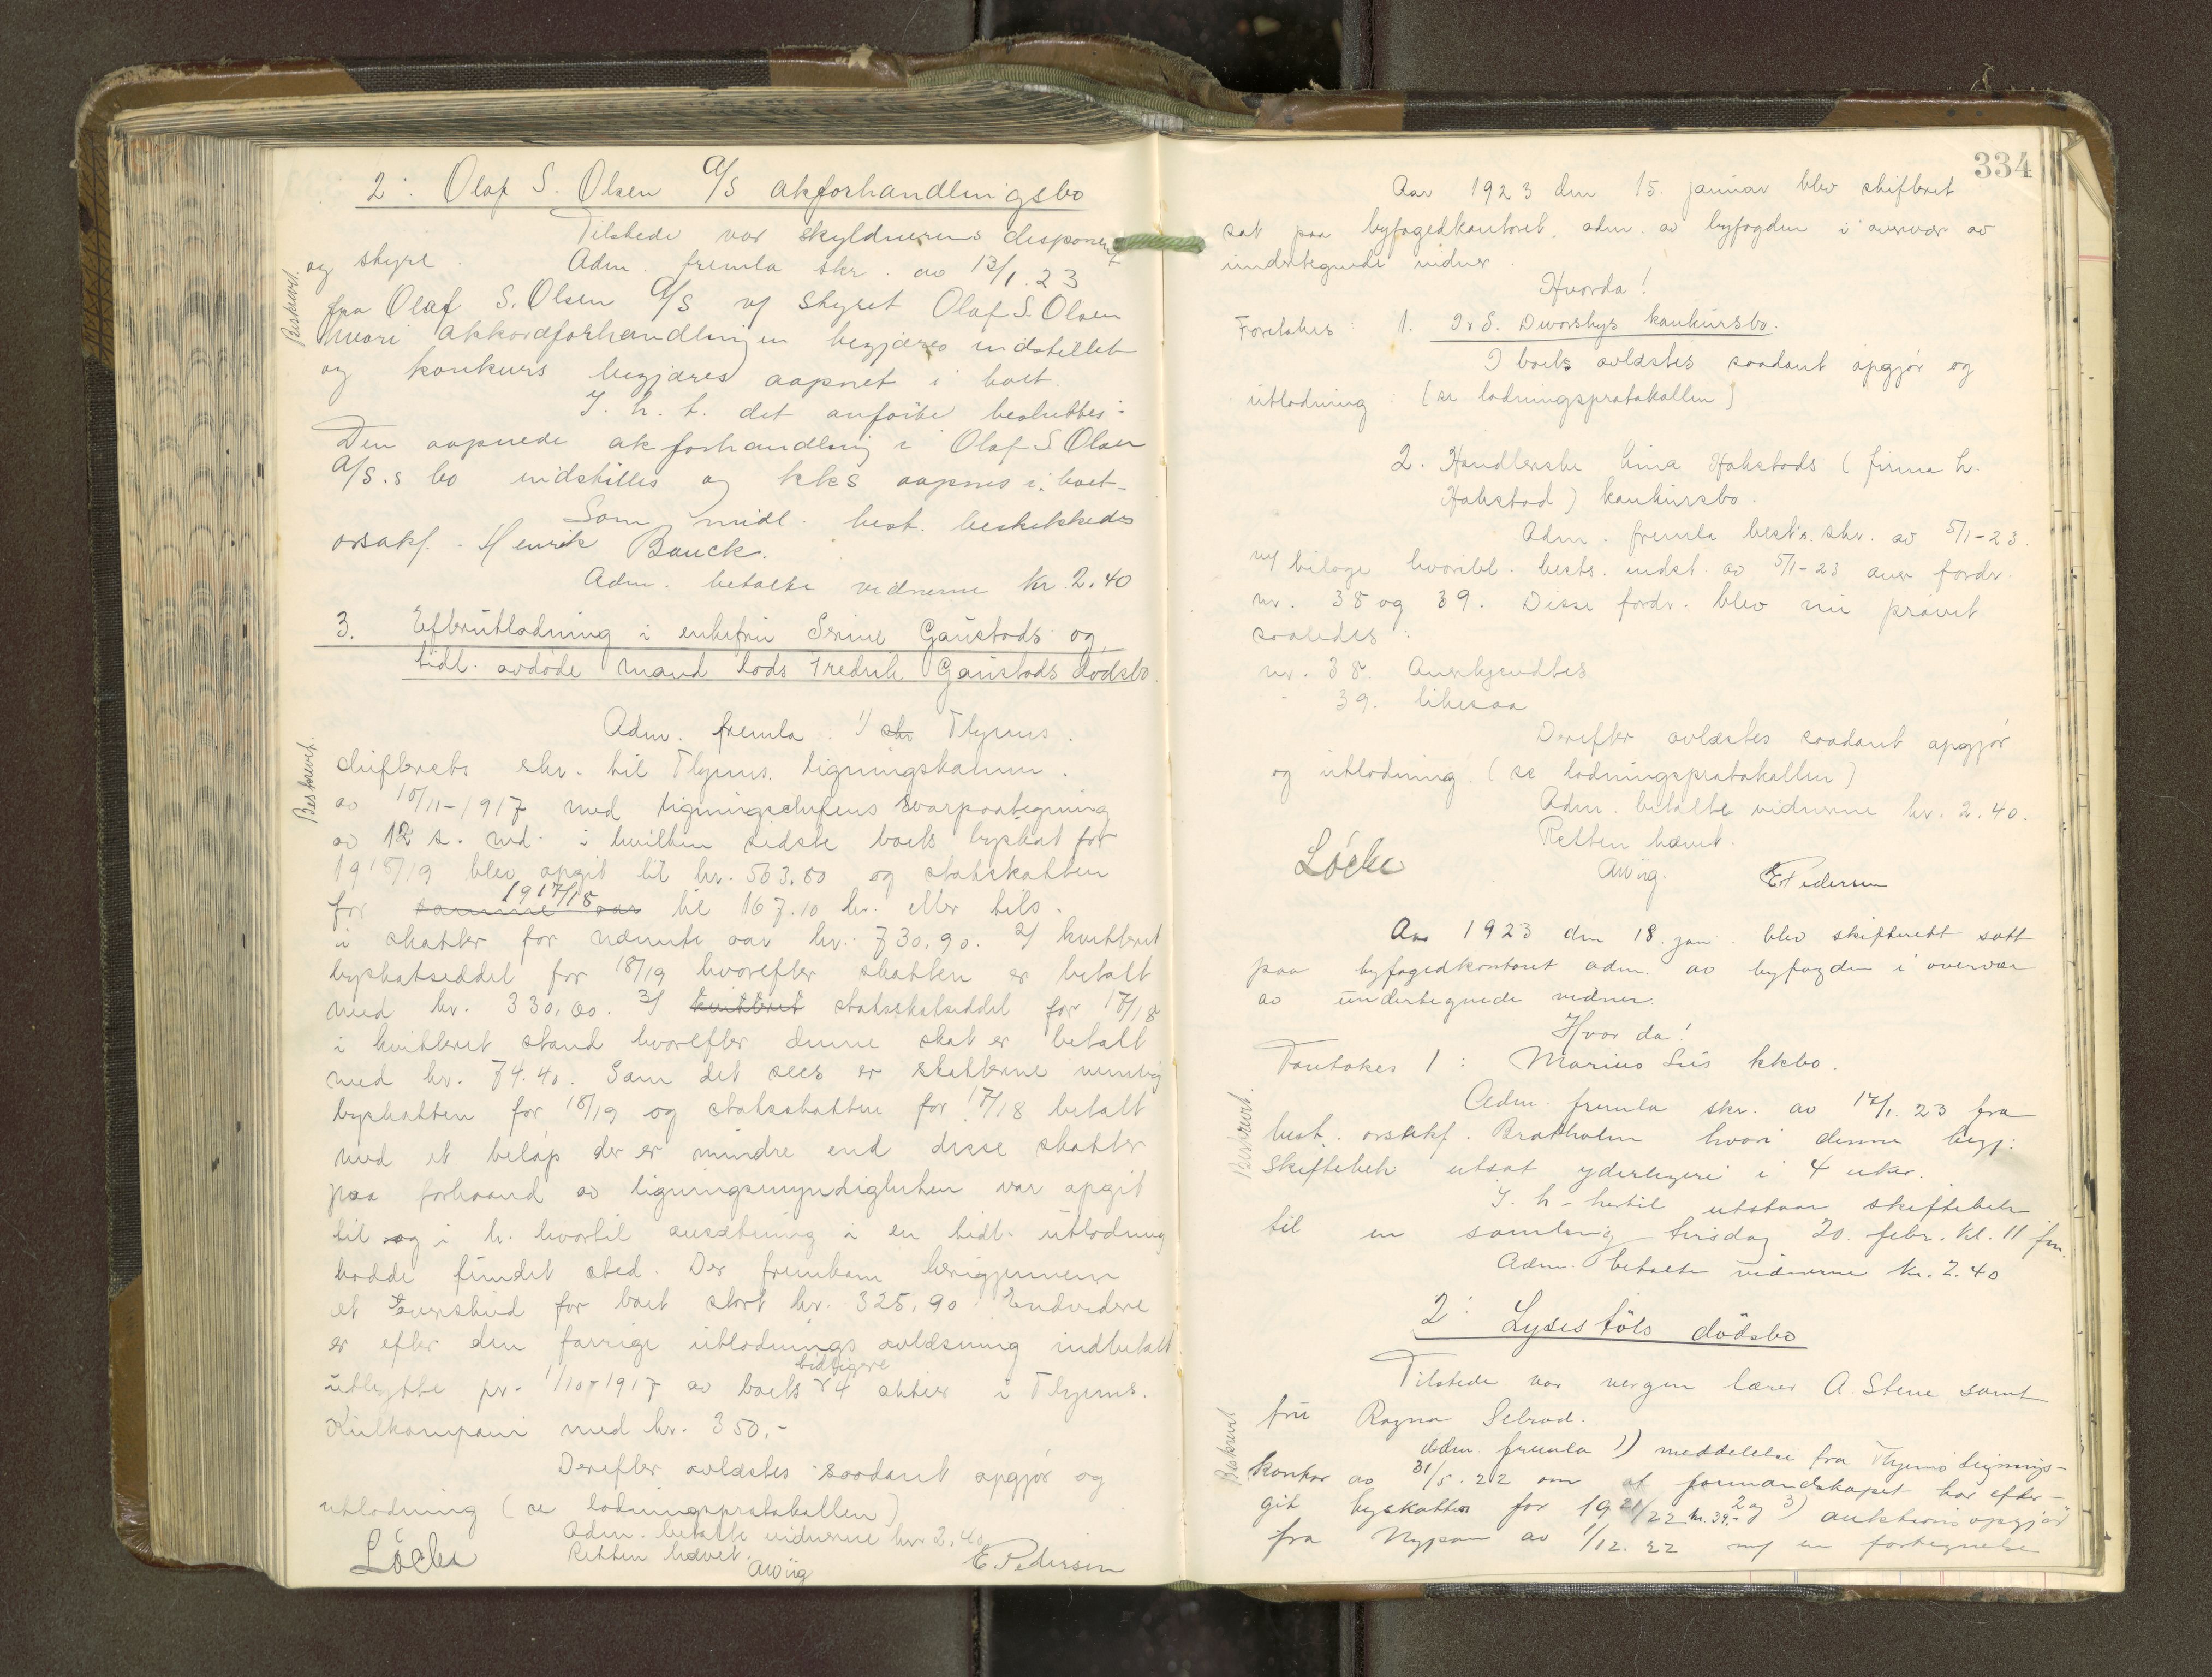 2: Olaf S. Olsen A/S akforhandlingsbo
Tilstede var skyldnerens disponent
og styre. Adm. fremla skr. av 13/1.23
fra Olaf S. Olsen A/S v/ styret Olaf S. Olsen
hvori akkordforhandlingen begjæres indstillet
og konkurs begjæres aapnet i boet.
I. h. t. det anførte besluttes:
Den aapnede akforhandling i Olaf S Olsen
A/S.s bo indstilles og kks aapnes i boet.
Som midl. best. beskikkedes
orsakf. Henrik Bauck.
Adm. betalte vidnerne kr. 2.40
3. Efterutlodning i enkefru Serine Gaustads og
tidl. avdøde mand lods Fredrik Gaustads dødsbo.
Adm. fremla. 1) skr Thjems.
skifterets skr. til Thjems. ligningskamm.
av 10/11-1917 med ligningschefens svarpaategning
av 12 s. md. i hvilken sidste boets byskat for
1918/19 blev opgit til kr. 563.80 og statskatten
1917/18
for samme aar til 167.10 kr. eller tils.
i skatter for nævnte aar kr. 730.90. 2/ kvitteret
byskatseddel for 18/19 hvorefter skatten er betalt
med kr. 330,00. 3/ kvitteret statsskatseddel for 17/18
i kvitteret stand hvorefter denne skat er betalt
med kr. 74.40. Som det sees er skatterne nemlig
byskatten for 18/19 og statsskatten for 17/18 betalt
med et beløp der er mindre end disse skatter
paa forhaand av ligningsmyndigheten var opgit
til og i h. hvortil ansætning i en tidl. utlodning
hadde fundet sted. Der fremkom herigjennem
et overskud for boet stort kr. 325,90. Endvidere
er efter den forrige utlodnings avlæsning indbetalt
tidligere
utbytte pr. 1/10-1917 av boets 4 aktier i Thjems.
Kulkompani med kr. 350,-
Derefter avlæstes saadant opgjør og
utlodning (se lodningsprotokollen)
Adm. betalte vidnerne kr. 2.40
Retten hævet.
Løchen AWiig E. Pedersen
Beskrevet.
Beskrevet.
334
Aar 1923 den 15. januar blev skifteret
sat paa byfogedkontoret, adm. av byfogden i overvær av
undertegnede vidner.
Hvorda!
Foretokes: 1. I & S. Dworskys konkursbo.
I boet avlæstes saadant opgjør og
utlodning: (se lodningsprotokollen)
2. Handlerske Lina Hakstads (firma L.
Hakstad) konkursbo.
Adm. fremla best's. skr. av 5/1-23.
m/ bilage hvoribl. bests. indst. av 5/1-23 over fordr.
nr. 38 og 39. Disse fordr. blev nu prøvet
saaledes:
nr. 38. Anerkjendtes
- 39. likesaa
Derefter avlæstes saadant opgjør
og utlodning. (se lodningsprotokollen)
Adm. betalte vidnerne kr. 2.40.
Retten hævet.
Løchen AWiig. E. Pedersen
Aar 1923 den 18. jan. blev skifterett satt
paa byfogedkontoret adm. av byfogden i overvær
av undertegnede vidner.
Hvor da!
Foretokes 1: Marius Lus kkbo.
Adm. fremla skr. av 17/1.23 fra
best. orsakf. Bratholm hvori denne begj:
skiftebeh utsat yderligere i 4 uker.
I. h - hertil utstaar skiftebeh
til en samling tirsdag 20. febr. kl. 11 fm.
Adm. betalte vidnerne kr. 2.40
2: Lyses tøls dødsbo
Tilstede var vergen lærer A. Stene samt
fru Ragna Selvad.
Adm. fremla 1) meddelelse fra Thjems lignings-
kontor av 31/5.22 om at formandskapet har efter-
git byskatten for 1921/22 kr. 39,- 2 og 3) auktionsopgjør
fra Nypan av 1/12.22 m/ en fortegnelse
Beskrevet
Beskrevet